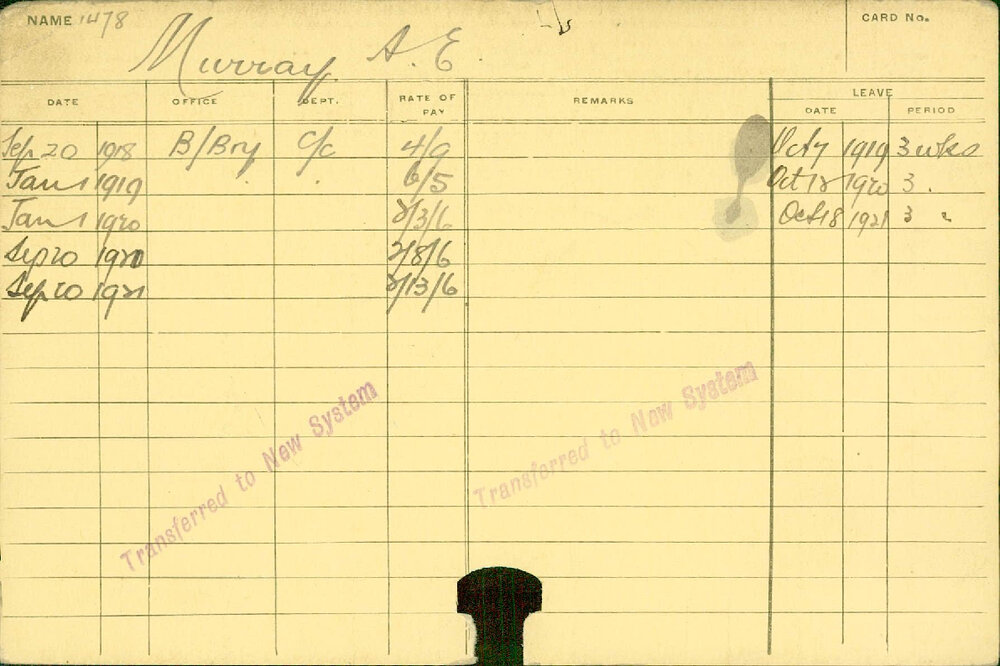 NAME 1478 CARD No.
Murray A. E.
DATE OFFICE DEPT. RATE OF PAY REMARKS LEAVE
DATE PERIOD
Sep 20 1918 B/Bry C/c 4/9 Oct 7 1919 3 wks
Jan 1 1919 6/5 Oct 18 1920 3 "
Jan 1 1920 2/3/6 Oct 18 1921 3 "
Sep 20 1920 2/8/6
Sep 20 1921 2/13/6
Transferred to New System
Transferred to New System